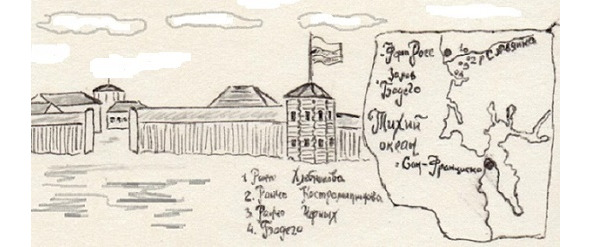 Форт Росс
р. Славянка
Залив
Бодего
Тихий
океан
Сан-Франциско
1. Ранчо Хлебникова
2. Ранчо Костромитинова
3. Ранчо Черных
4. Бодего